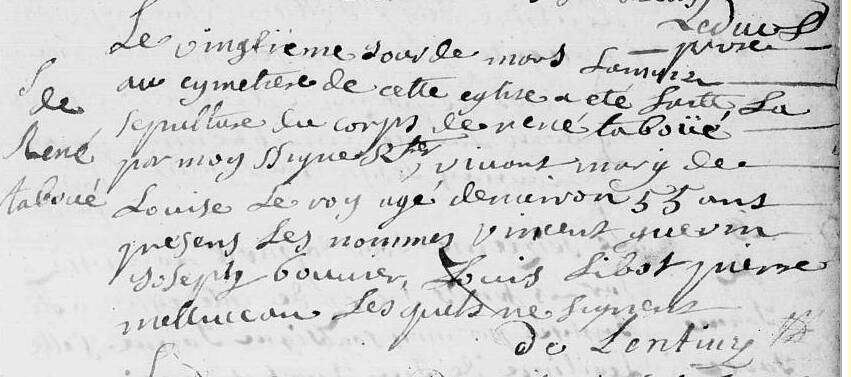 Leduc
prse
Le vingtieme jour de mars
au cymetiere de cette eglise a eté faitte La
sepulture du corps de rené taboüé
par moy signé vivant mary de
Louise Le roy agé denviron 55 ans
presens Les nommes vincent guerin
joseph bouvier, Louis Libot pierre
melluceau Lesquels ne signent
S
de
René
taboué
de Lentiuy